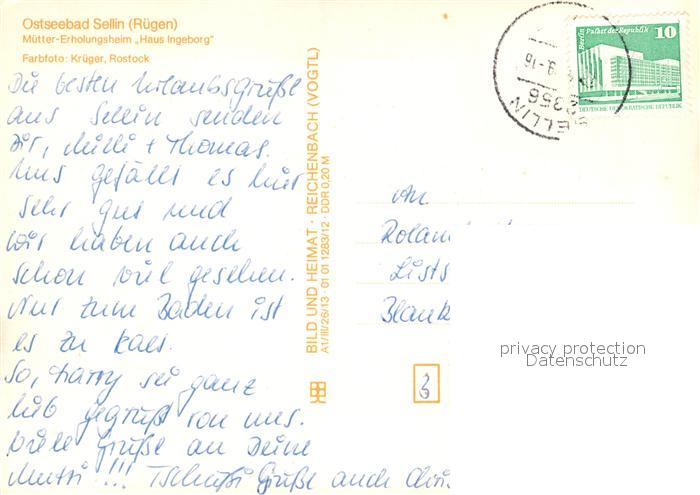 Ostseebad Sellin (Rügen)
Mütter-Erholungsheim „Haus Ingeborg"
Farbfoto: Krüger, Rostock
Die besten Urlaubsgrüße
aus Sellin senden
Dir, + Thomas.
Uns gefällt es hier
sehr gut und
wir haben auch
schon viel gesehen.
Nur zum Baden ist
es zu kalt.
So, Harry sei ganz
lieb gegrüßt von uns.
Viele Grüße an Deine
Mutti!!! Tschüß Grüße auch
BILD UND HEIMAT · REICHENBACH (VOGTL)
A1/III/26/13 · 01 01 1283/12 · DDR 0,20 M
Berlin Palast der Republik
10
DEUTSCHE DEMOKRATISCHE REPUBLIK
SELLIN
2356
An
Rolan
Lists
Blank
privacy protection
Datenschutz